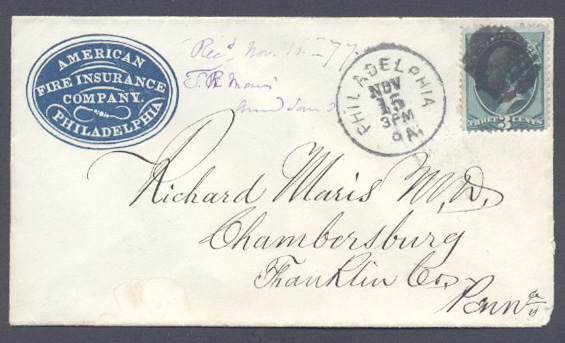 AMERICAN
FIRE INSURANCE
COMPANY.
PHILADELPHIA
Rec'd Nov. 77
PHILADELPHIA
NOV
15
3PM
PA.
THREE 3 CENTS
Richard Maris M.D.
Chambersburg
Franklin Co.
Penn^a